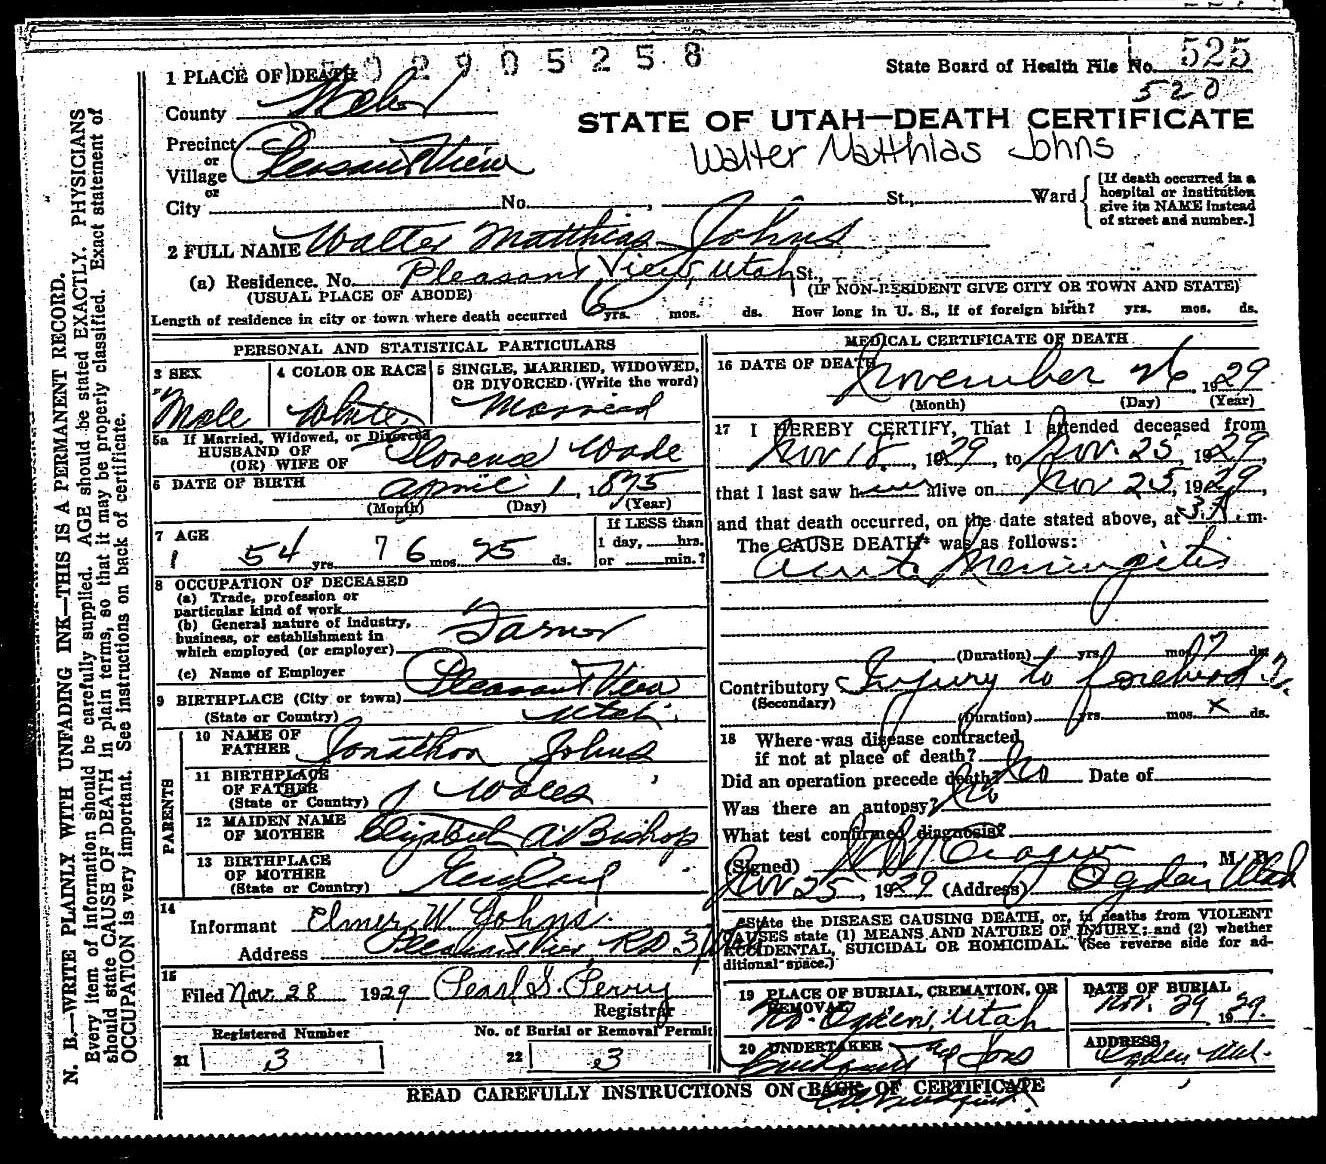 2905258
1 PLACE OF DEATH
State Board of Health File No. 525
520
County Weber
STATE OF UTAH—DEATH CERTIFICATE
Walter Matthias Johns
Precinct
or
Village Pleasant View
or
City No. , St., Ward
[If death occurred in a hospital or institution give its NAME instead of street and number.]
2 FULL NAME Walter Matthias Johns
(a) Residence. No. Pleasant View, Utah St.,
(USUAL PLACE OF ABODE) (IF NON-RESIDENT GIVE CITY OR TOWN AND STATE)
Length of residence in city or town where death occurred 6 yrs. mos. ds. How long in U. S., if of foreign birth? yrs. mos. ds.
PERSONAL AND STATISTICAL PARTICULARS
3 SEX
Male
4 COLOR OR RACE
White
5 SINGLE, MARRIED, WIDOWED, OR DIVORCED (Write the word)
Married
5a If Married, Widowed, or Divorced
HUSBAND OF
(OR) WIFE OF Florence Wade
6 DATE OF BIRTH April 1, 1875
(Month) (Day) (Year)
7 AGE
54 yrs. 7 6 mos. 25 ds.
If LESS than
1 day, hrs.
or min.?
8 OCCUPATION OF DECEASED
(a) Trade, profession or
particular kind of work
(b) General nature of industry,
business, or establishment in
which employed (or employer)
Farmer
(c) Name of Employer
9 BIRTHPLACE (City or town) Pleasant View
(State or Country) Utah
PARENTS
10 NAME OF
FATHER Jonathon Johns
11 BIRTHPLACE
OF FATHER
(State or Country) Wales
12 MAIDEN NAME
OF MOTHER Elizabeth A Bishop
13 BIRTHPLACE
OF MOTHER
(State or Country) England
14
Informant Elmer W. Johns.
Address Pleasant View, RD 3
15
Filed Nov. 28 1929 Pearl G. Perry
Registrar
Registered Number
21 3
No. of Burial or Removal Permit
22 3
MEDICAL CERTIFICATE OF DEATH
16 DATE OF DEATH November 26, 1929
(Month) (Day) (Year)
17 I HEREBY CERTIFY, That I attended deceased from
Nov 18, 1929, to Nov. 25, 1929,
that I last saw him alive on Nov 25, 1929,
and that death occurred, on the date stated above, at 3 A. m.
The CAUSE DEATH* was as follows:
Acute Meningitis
(Duration) yrs. mos. 7 ds.
Contributory Injury to forehead ?
(Secondary)
(Duration) yrs. mos. x ds.
18 Where was disease contracted
if not at place of death?
Did an operation precede death? No Date of
Was there an autopsy? No
What test confirmed diagnosis?
(Signed) , M. D.
Nov 25, 1929 (Address) Ogden Utah
*State the DISEASE CAUSING DEATH, or, in deaths from VIOLENT
CAUSES state (1) MEANS AND NATURE OF INJURY; and (2) whether
ACCIDENTAL, SUICIDAL OR HOMICIDAL. (See reverse side for ad-
ditional space.)
19 PLACE OF BURIAL, CREMATION, OR
REMOVAL
No. Ogden, Utah
DATE OF BURIAL
Nov. 29 1929.
20 UNDERTAKER
and Sons
ADDRESS
Ogden Utah.
READ CAREFULLY INSTRUCTIONS ON BACK OF CERTIFICATE
N. B.—WRITE PLAINLY WITH UNFADING INK—THIS IS A PERMANENT RECORD.
Every item of information should be carefully supplied. AGE should be stated EXACTLY. PHYSICIANS
should state CAUSE OF DEATH in plain terms, so that it may be properly classified. Exact statement of
OCCUPATION is very important. See instructions on back of certificate.